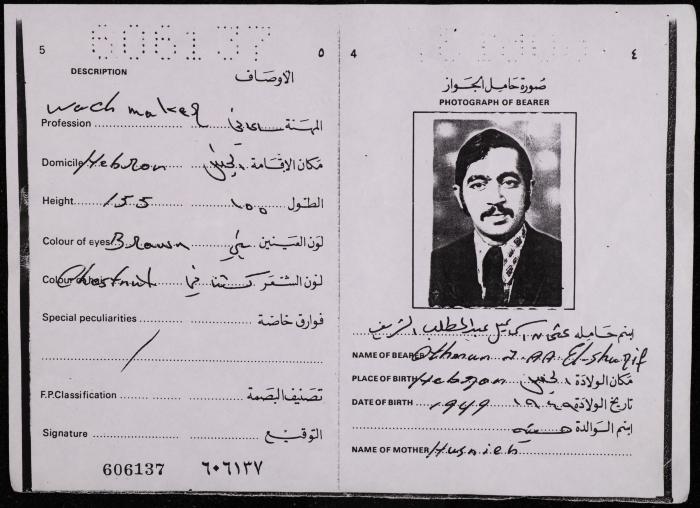 5 606137 ٥
DESCRIPTION الاوصاف
wach maker
Profession المهنة ساعاتي
Domicile Hebron مكان الاقامة الخليل
Height 155 الطول ١٥٥
Colour of eyes Brown لون العينين بني
Colour of hair Chestnut لون الشعر كستنائي
Special peculiarities فوارق خاصة
/
F.P.Classification تصنيف البصمة
Signature التوقيع
606137 ٦٠٦١٣٧
4 ٤
صورة حامل الجواز
PHOTOGRAPH OF BEARER
اسم حامله عثمان اسماعيل عبد المطلب الشريف
NAME OF BEARER Othman I. AA El-sharif
PLACE OF BIRTH Hebron مكان الولادة الخليل
DATE OF BIRTH 1949 تاريخ الولادة ١٩٤٩
اسم الوالدة
NAME OF MOTHER Husnieh